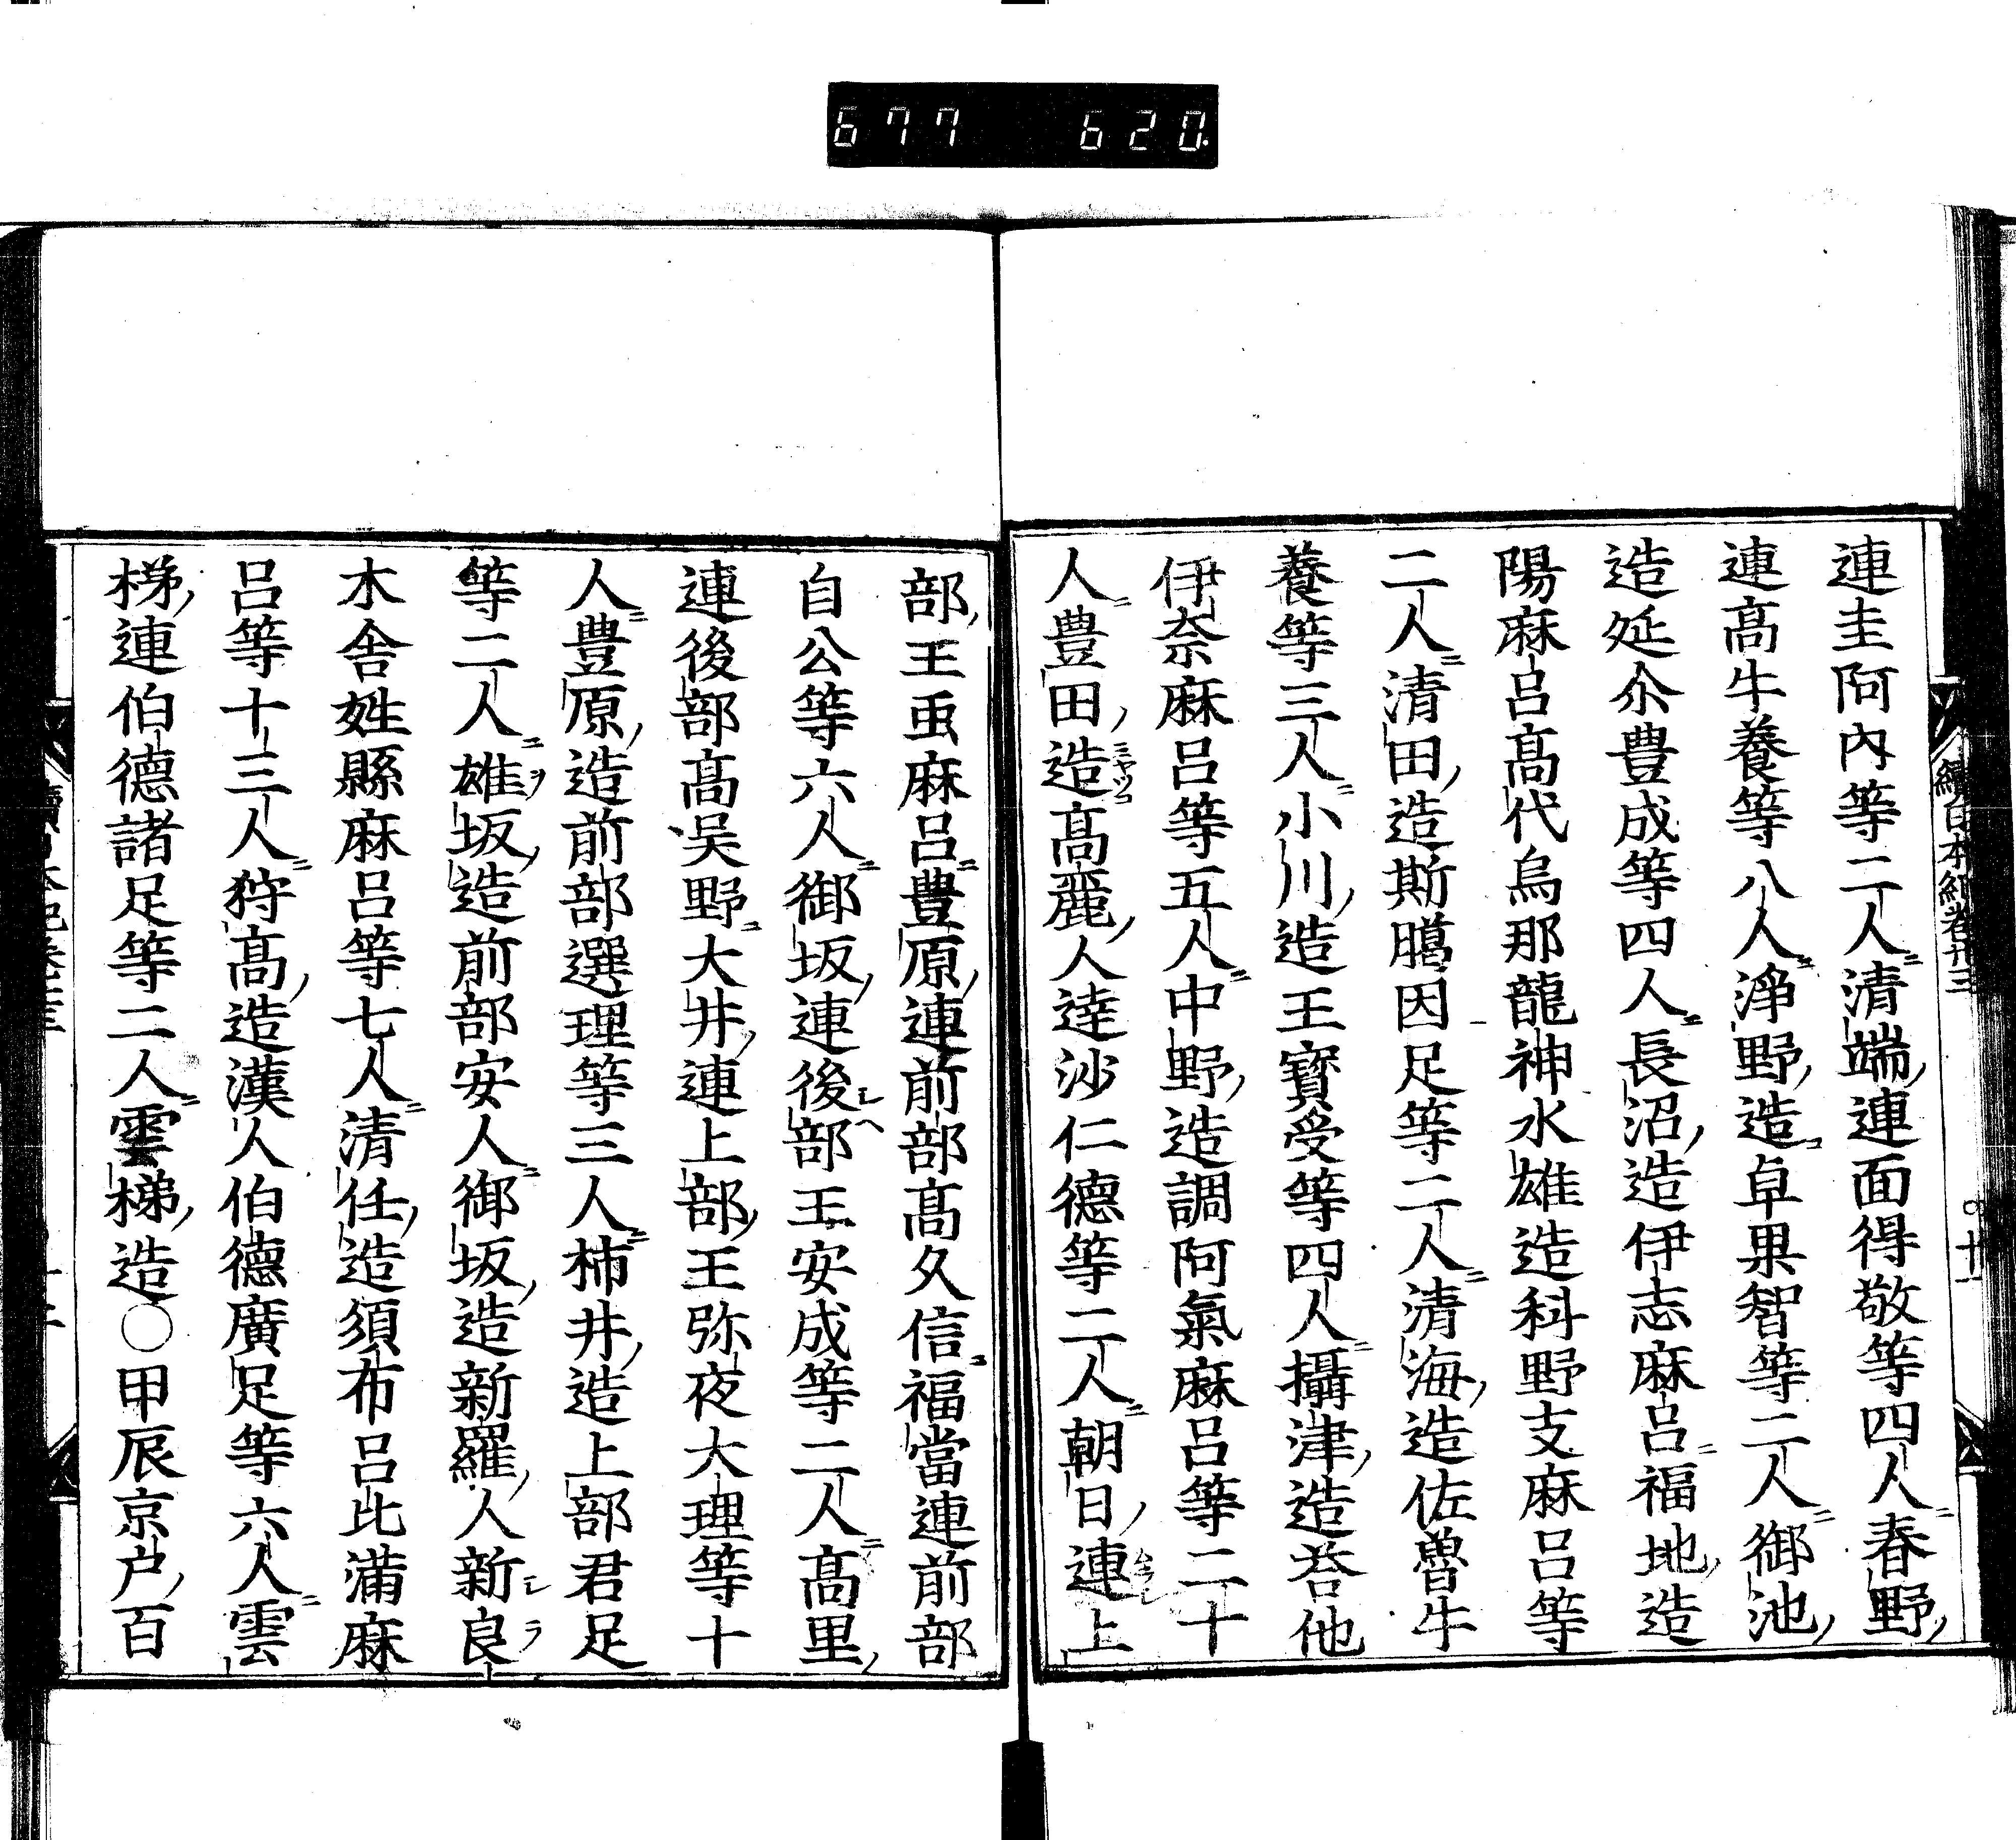 677 620
續日本紀卷廿三
十一
連圭阿內等二人清端連面得敬等四人春野
連高牛養等八人淨野造卓果智等二人御池
造延尒豊成等四人長沼造伊志麻呂福地造
陽麻呂高代烏那龍神水雄造科野支麻呂等
二人清田造斯﨟因足等二人清海造佐魯牛
養等三人小川造王寶受等四人攝津造荅他
伊奈麻呂等五人中野造調阿氣麻呂等二十
人豊田造ミヤツコ高麗人達沙仁德等二人朝日連ムラジ上
部王䖝麻呂豊原連前部高久信福當連前部
自公等六人御坂連後シヘ部王安成等二人高里
連後部高吴野大井連上部王弥夜大理等十
人豊原造前部選理等三人柿井造上部君足
等二人雄ヲ坂造前部安人御坂造新羅人新シ良ラ
木舎姓縣麻呂等七人清任造須布呂比蒲麻
呂等十三人狩高造漢人伯德廣足等六人雲
梯連伯德諸足等二人雲梯造○甲辰京户百